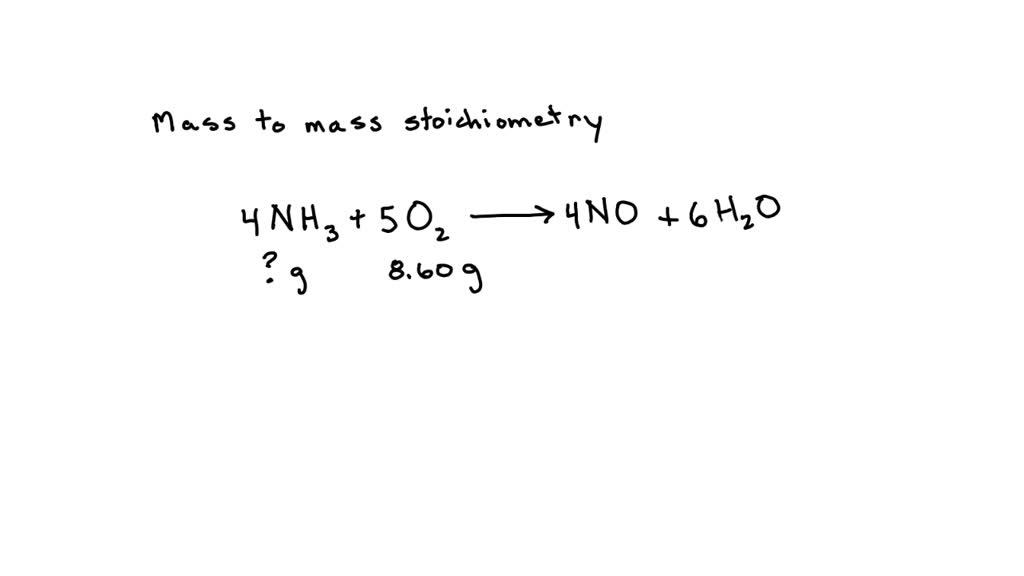 Mass to mass stoichiometry
4NH₃ + 5O₂ → 4NO + 6H₂O
? g 8.60 g